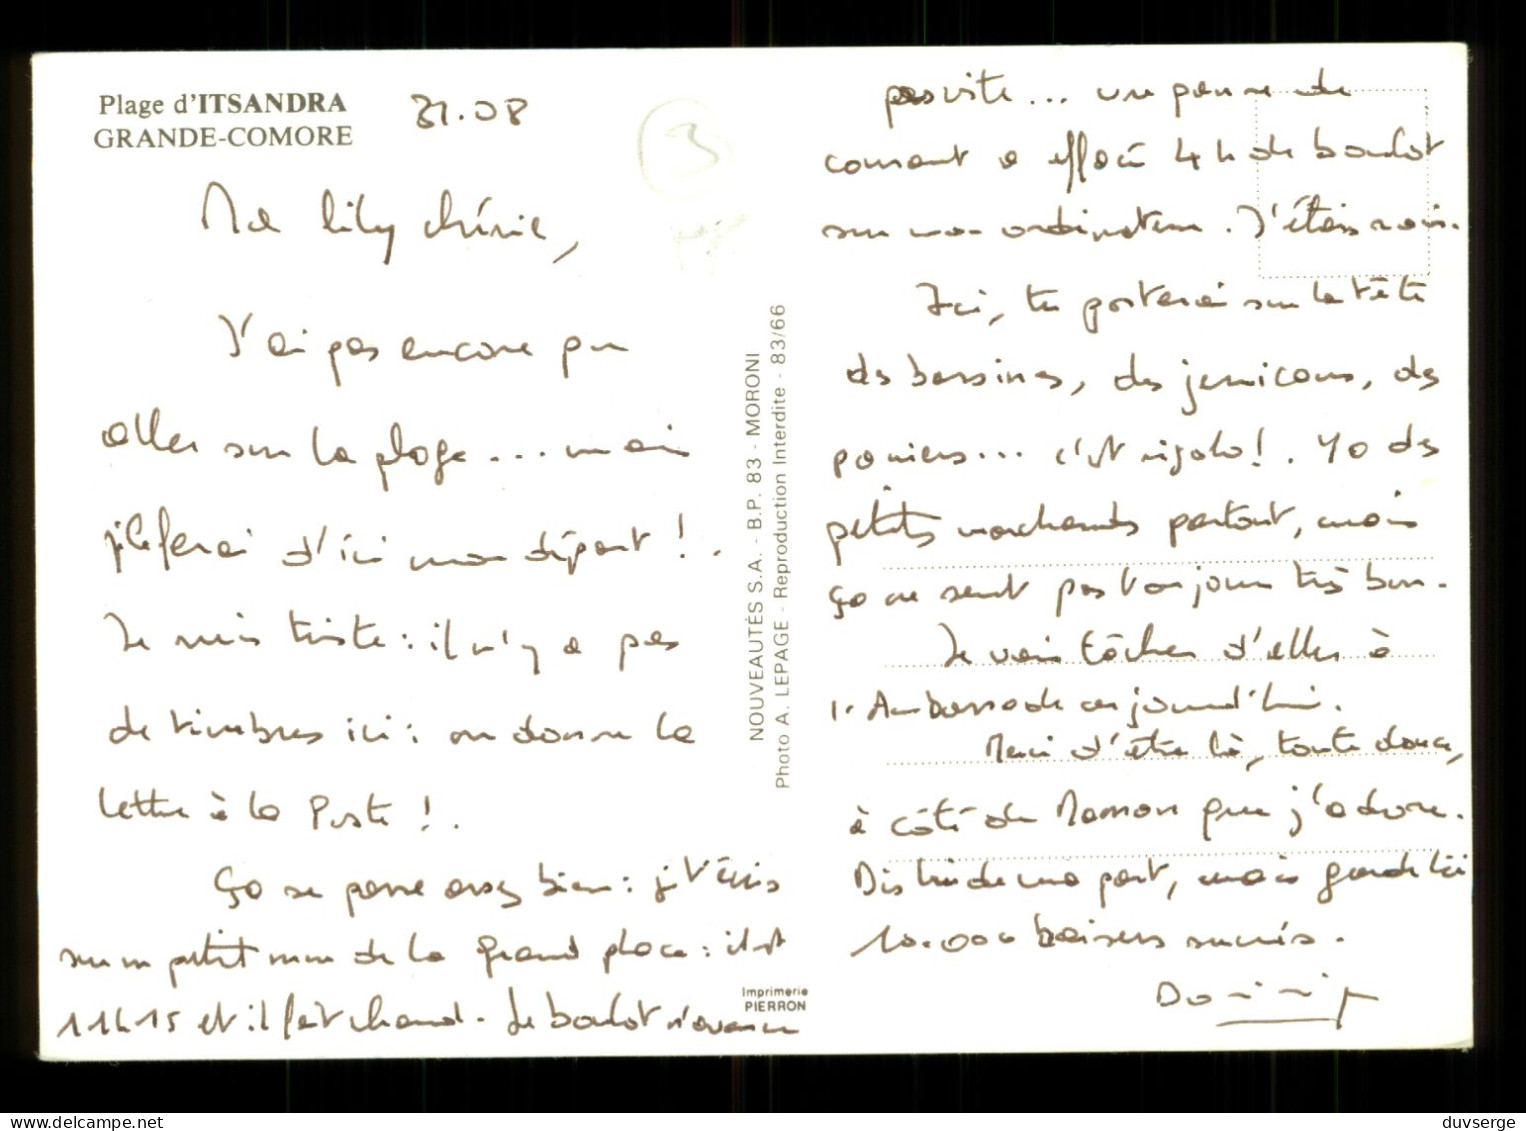 Plage d'ITSANDRA
GRANDE-COMORE
31.08
3
Ma Lily chérie,
J'ai pas encore pu
aller sur la plage... mais
je le ferai d'ici mon départ !.
Je suis triste : il n'y a pas
de timbres ici : on donne la
lettre à la Poste !.
Ça se passe assez bien : je t'écris
sur un petit mur de la grand place : il est
11h15 et il fait chaud. Le boulot n'avance
pas vite... une panne de
courant a effacé 4h de boulot
sur mon ordinateur. J'étais
Ici, tu porterai sur la tête
des bassines, des jerricans, des
paniers... c'est rigolo !. Y a des
petits marchands partout, mais
ça ne sent pas toujours très bon.
Je vais tâcher d'aller à
l'Ambassade aujourd'hui.
Merci d'être là, toute douce,
à côté de Maman que j'adore.
Dis lui de ma part, mais garde lui
10.000 baisers sucrés.
NOUVEAUTÉS S.A. - B.P. 83 - MORONI
Photo A. LEPAGE - Reproduction Interdite - 83/66
Imprimerie
PIERRON
delcampe.net
duvserge